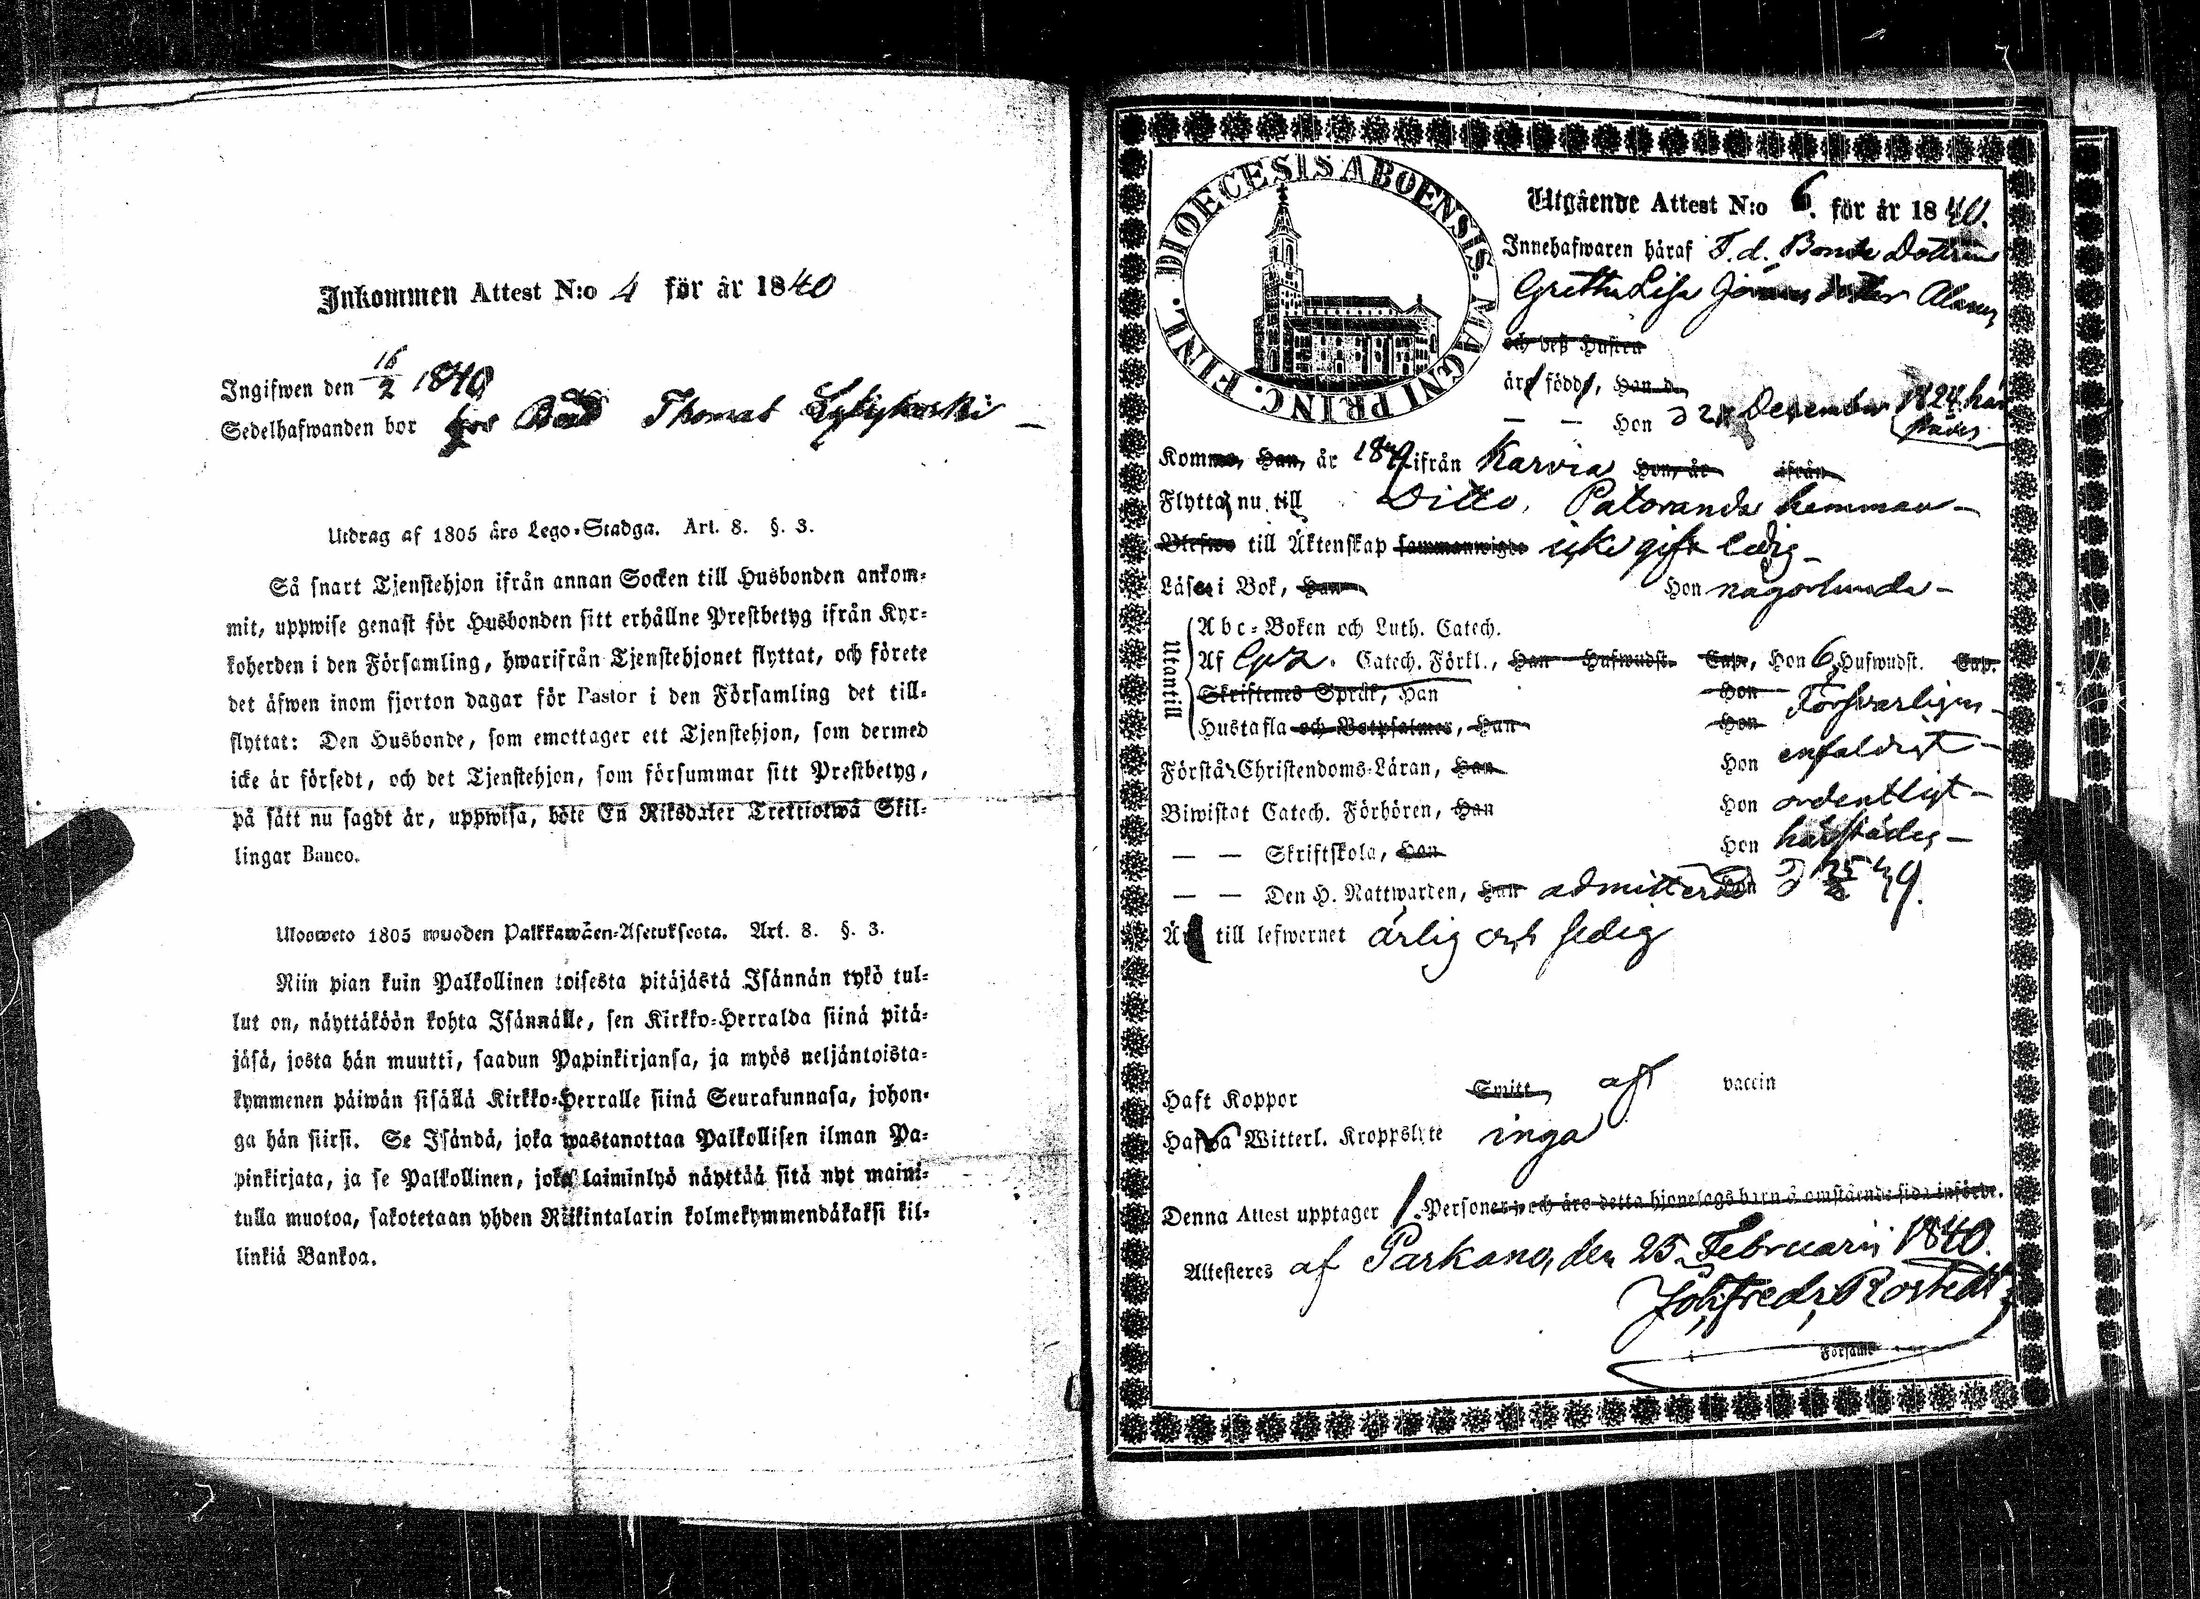 Inkommen Attest N:o 4 för år 1840
Ingifwen den 16/2 1840
Sedelhafwanden bor hos Thomas
Utdrag af 1805 års Lego-Stadga. Art. 8. §. 3.
Så snart Tjenstehjon ifrån annan Socken till Husbonden ankom-
mit, uppwise genast för Husbonden sitt erhållne Prestbetyg ifrån Kyr-
koherden i den Församling, hwarifrån Tjenstehjonet flyttat, och förete
det äfwen inom fjorton dagar för Pastor i den Församling det till-
flyttat: Den Husbonde, som emottager ett Tjenstehjon, som dermed
icke är försedt, och det Tjenstehjon, som försummar sitt Prestbetyg,
på sätt nu sagdt är, uppwisa, böte En Riksdaler Trettiotwå Skil-
lingar Banco.
Ulosweto 1805 wuoden Palkkawäen-Asetuksesta. Art. 8. §. 3.
Niin pian kuin Palkollinen toisesta pitäjästä Isännän tykö tul-
lut on, näyttäköön kohta Isännälle, sen Kirkko-Herralda siinä pitä-
jäsä, josta hän muutti, saadun Papinkirjansa, ja myös neljäntoista-
kymmenen päiwän sisällä Kirkko-Herralle siinä Seurakunnasa, johon-
ga hän siirsi. Se Isändä, joka wastanottaa Palkollisen ilman Pa-
pinkirjata, ja se Palkollinen, joka laiminlyö näyttää sitä nyt maini-
tulla muotoa, sakotetaan yhden Riikintalarin kolmekymmendäkaksi kil-
linkiä Bankoa.
DIOECESIS ABOENSIS. MAGNI PRINC. FINL.
Utgående Attest N:o 6. för år 1840.
Innehafwaren häraf F. d. Bonde Dottren
Gretha Lisa
och deß Hustru
äro födde, Han d.
— — Hon d 21 December 1824 här
städes
Komne, Han, år ifrån Karvia Hon, år ifrån
Flytta nu till Ditto, hemman
Blefwo till Äktenskap sammanwigde icke gift ledig
Läsa i Bok, Han Hon någorlunda
Utantill
Abc-Boken och Luth. Catech.
Af Catech. Förkl., Han Hufwudst. Cap., Hon 6 Hufwudst. Cap.
Skriftenes Språk, Han Hon Försvarligen
Hustafla och Botpsalmer, Han Hon
Förstår Christendoms-Läran, Han Hon enfaldigt
Biwistat Catech. Förhören, Han Hon ordentligt
— — Skriftskola, Han Hon härstädes
— — Den H. Nattwarden, Han admitterad Hon
Är till lefwernet ärlig och sedig
Haft Koppor Smitt af vaccin
Hafwa Witterl. Kroppslyte inga
Denna Attest upptager 1. Personer och äro detta hjonelags barn å omstående sida införde.
Attesteres af Parkano, den 25 Februarii 1840.
Joh. Fredr. Rostedt
i Församl.